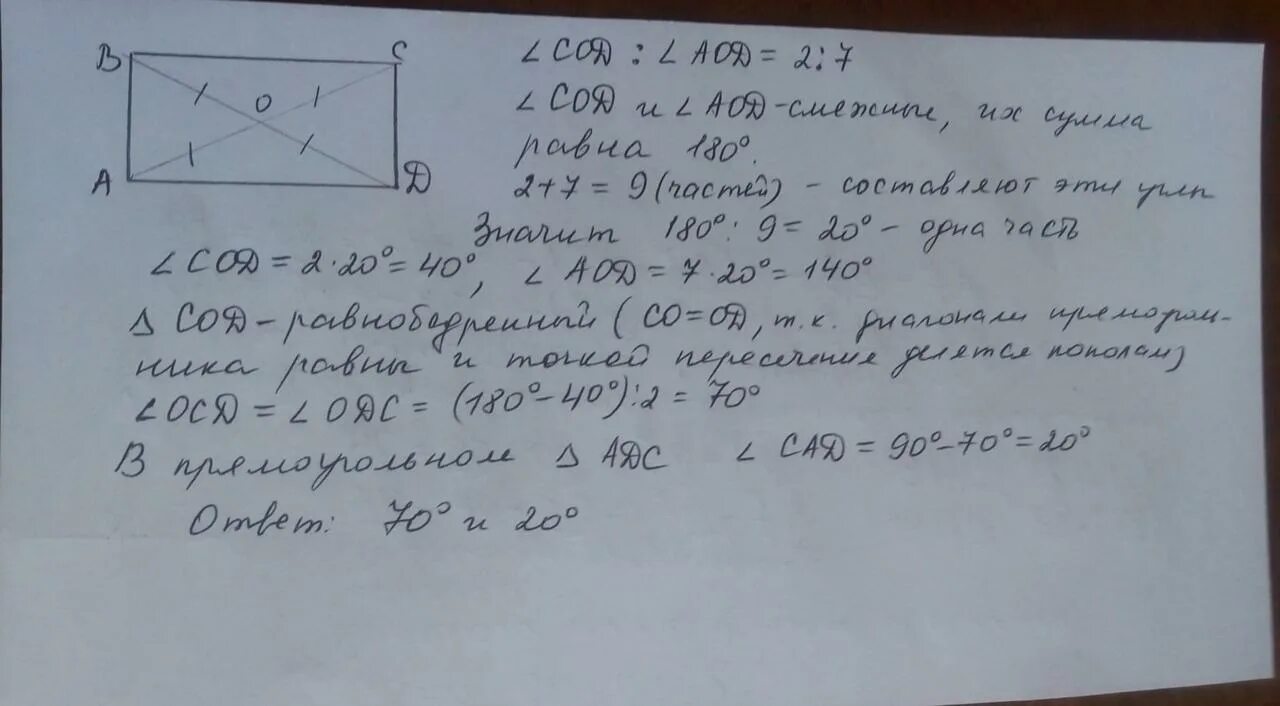 B C
O
A D
∠COD : ∠AOD = 2:7
∠COD и ∠AOD - смежные, их сумма
равна 180°.
2+7 = 9 (частей) - составляют эти углы
Значит 180° : 9 = 20° - одна часть
∠COD = 2·20° = 40°, ∠AOD = 7·20° = 140°
Δ COD - равнобедренный (CO=OD, т.к. диагонали прямоуголь-
ника равны и точкой пересечения делятся пополам)
∠OCD = ∠ODC = (180°-40°):2 = 70°
В прямоугольном Δ ADC ∠CAD = 90°-70°=20°
Ответ: 70° и 20°